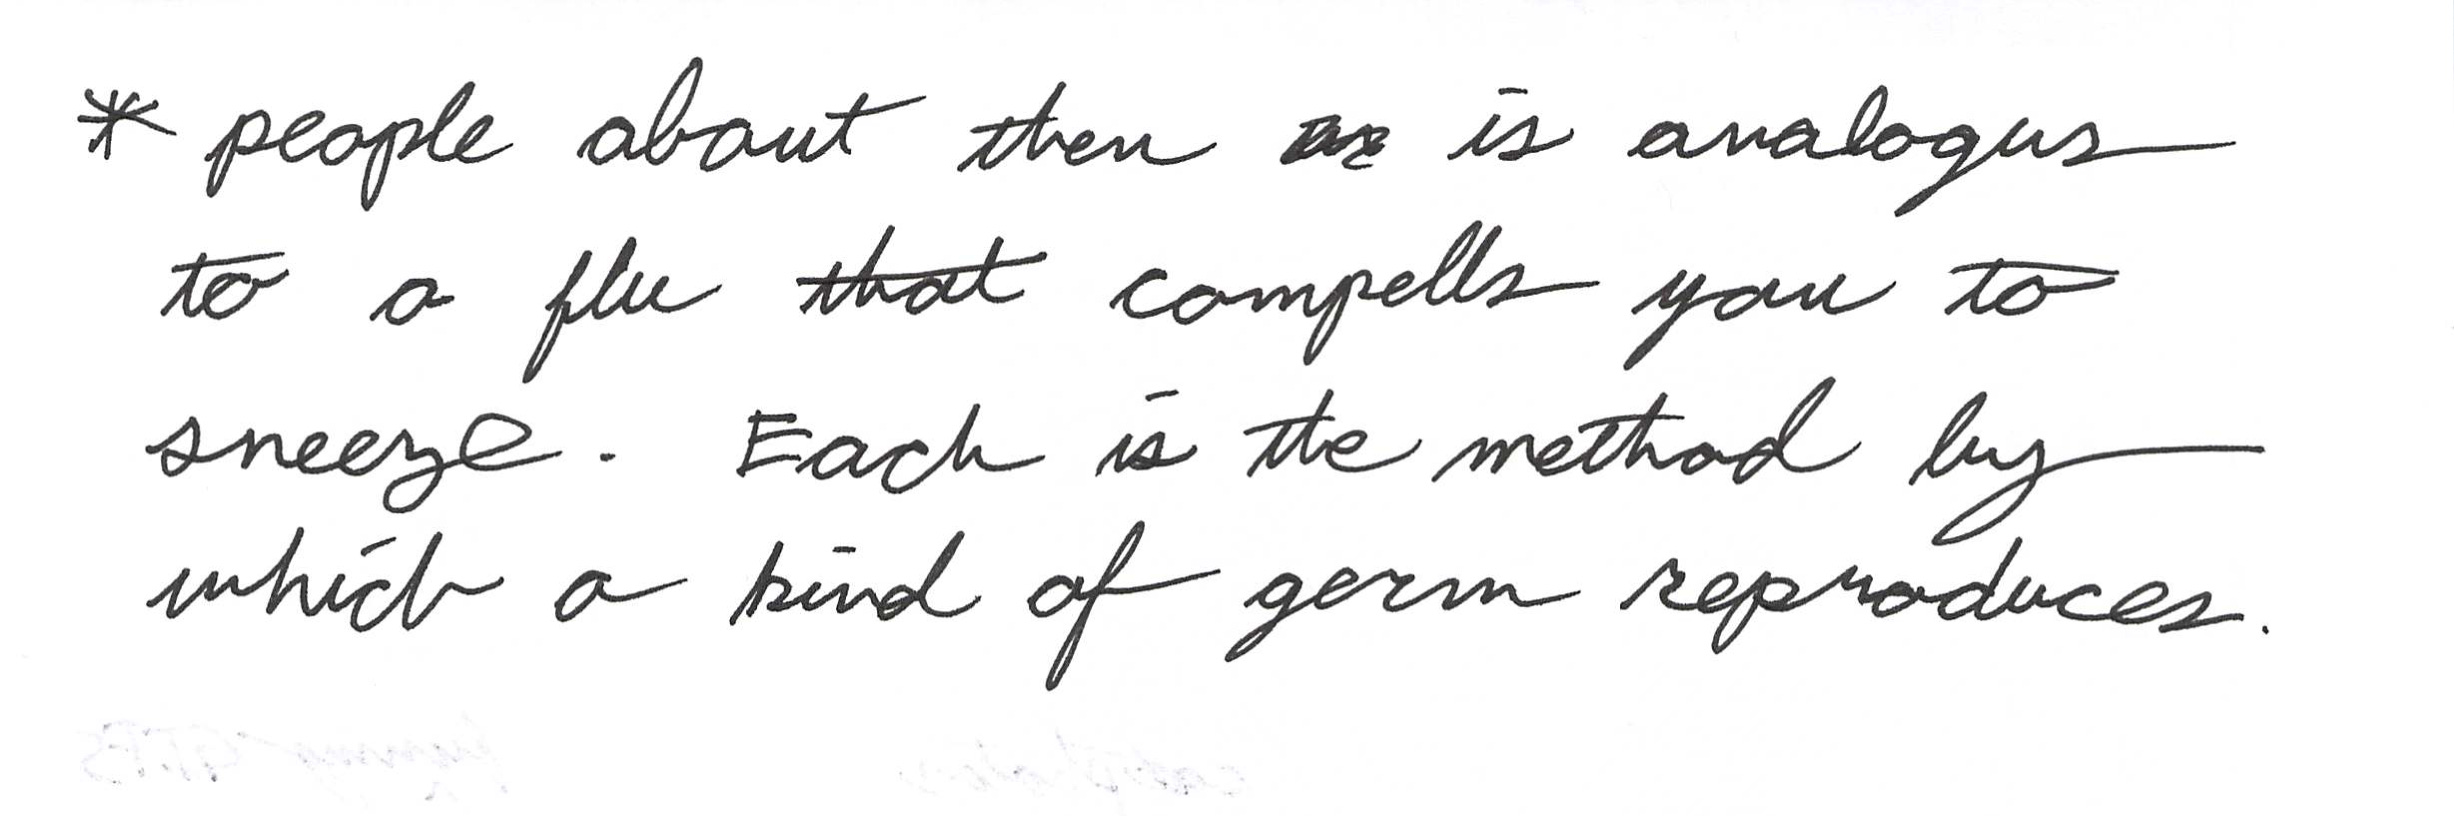 * people about then is analogus
to a flu that compells you to
sneeze. Each is the method by
which a kind of germ reproduces.